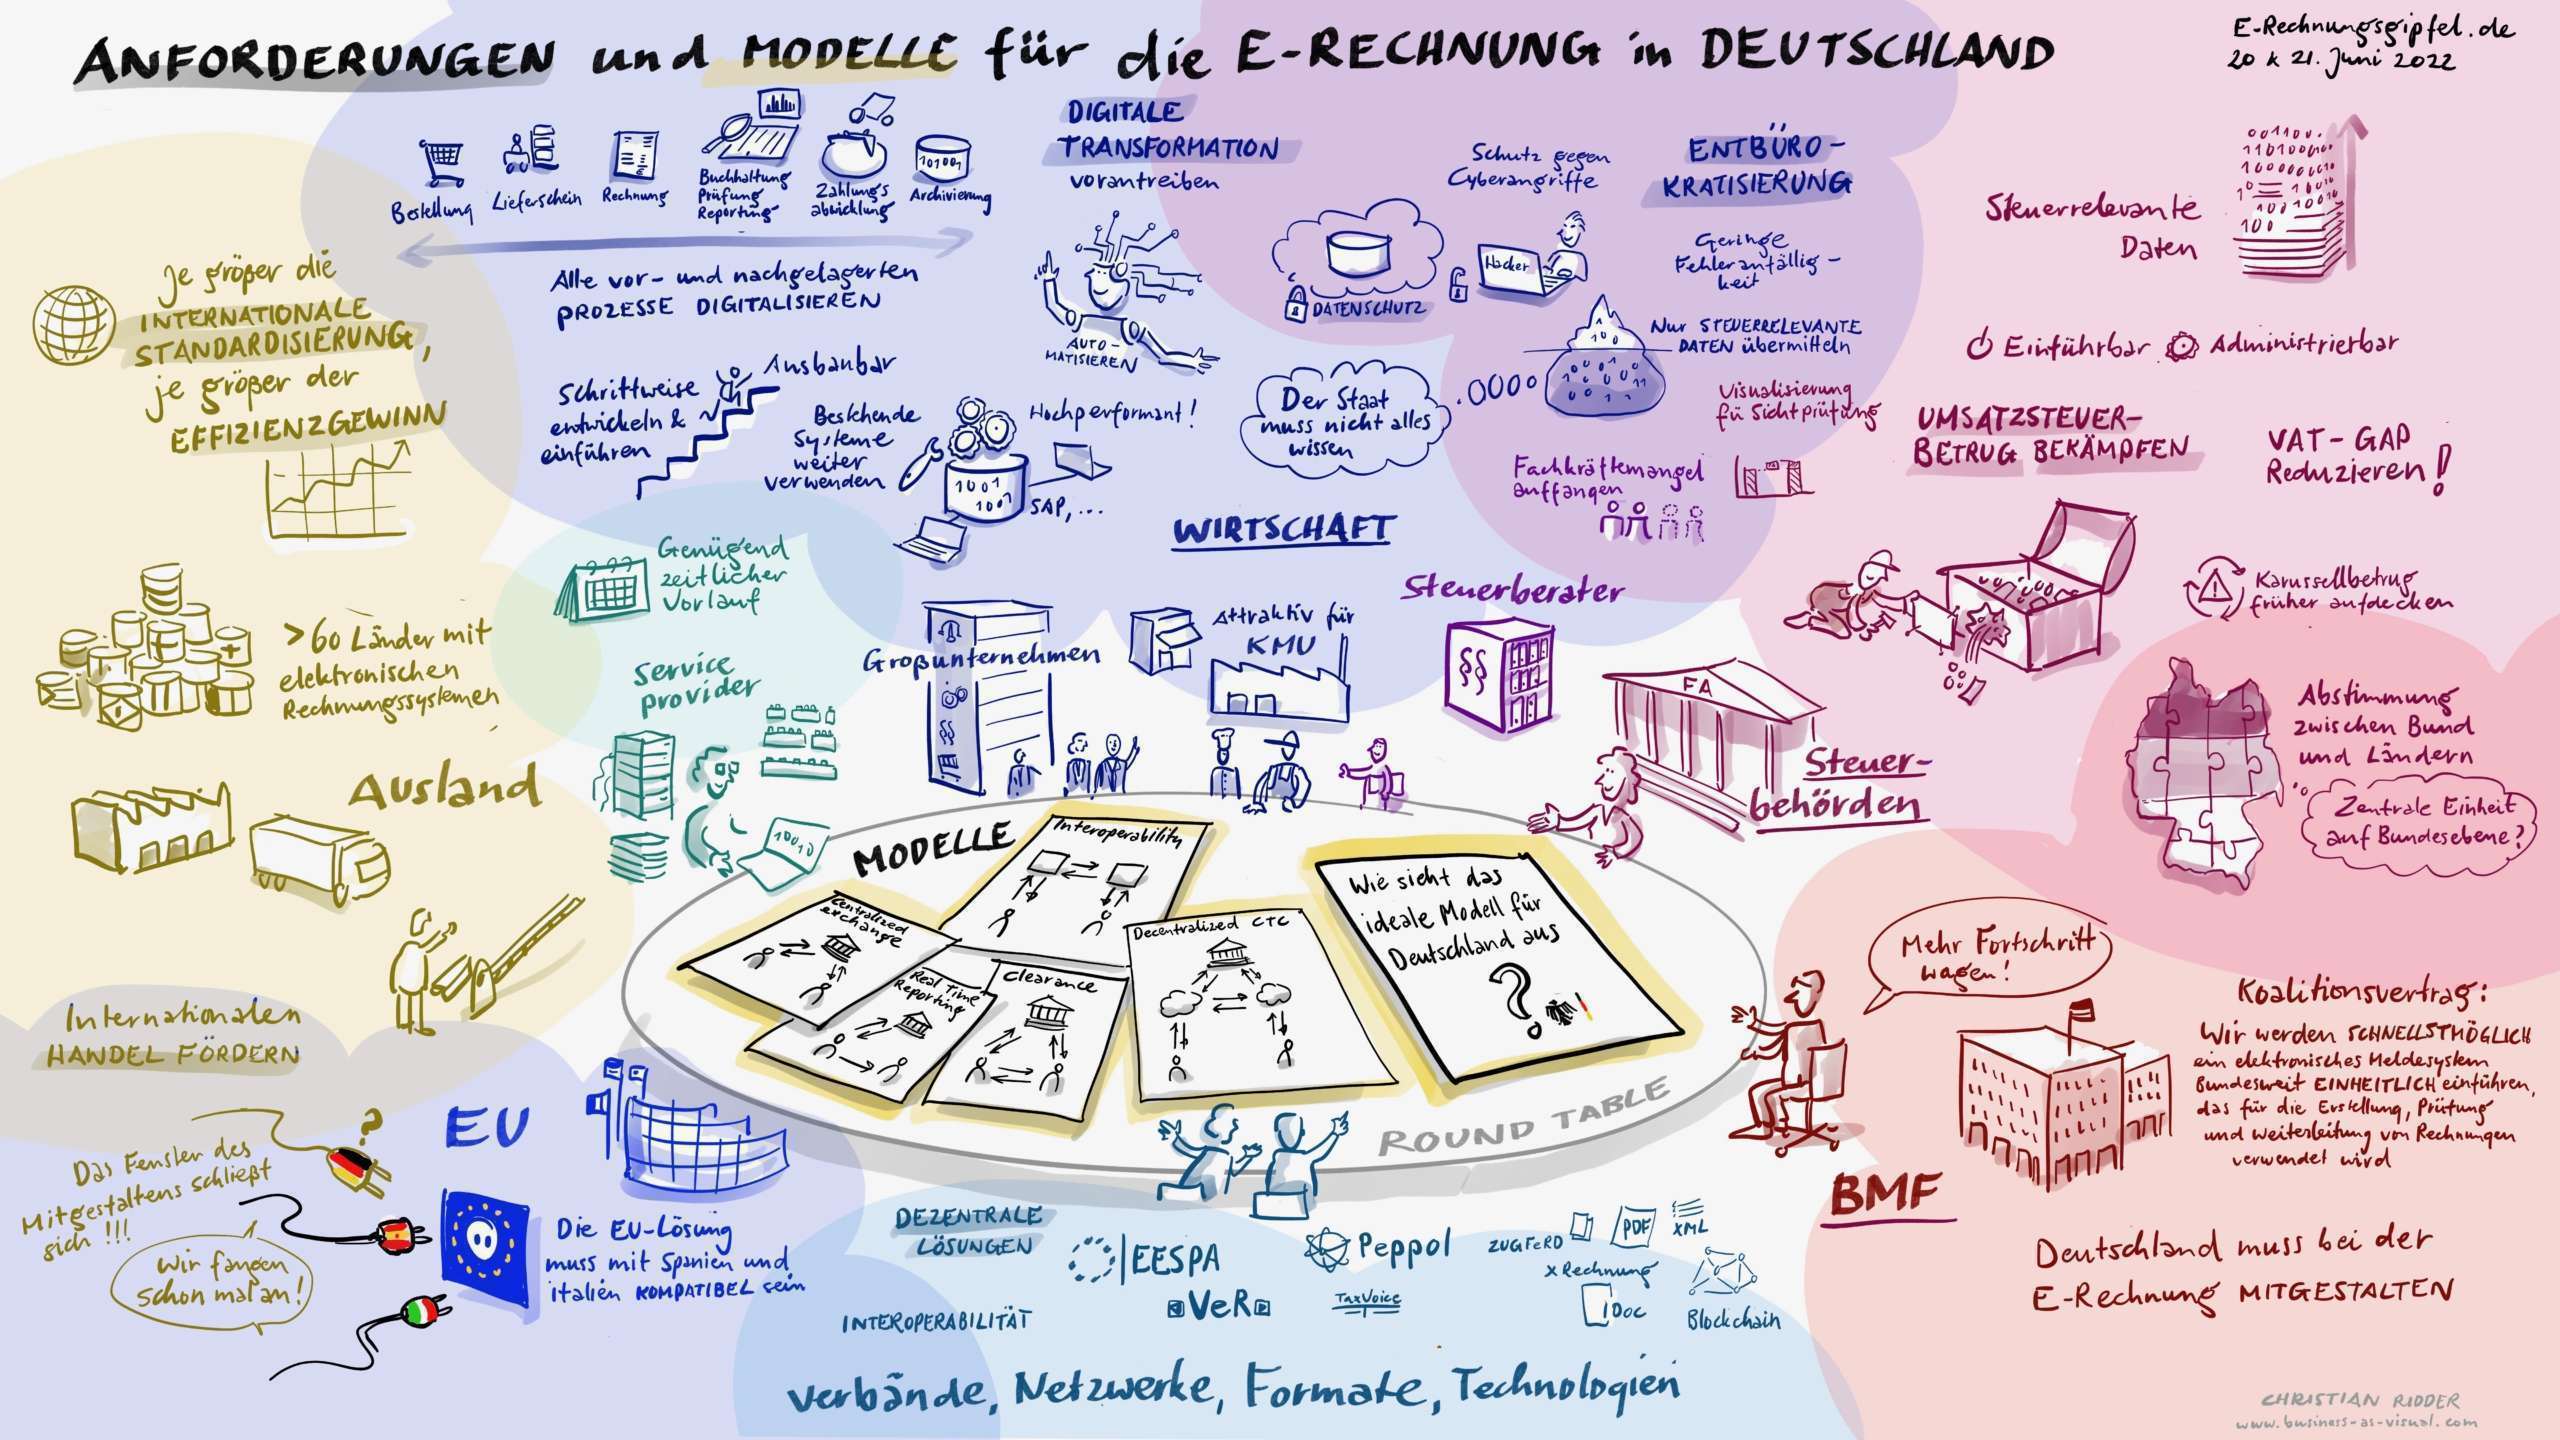 ANFORDERUNGEN und MODELLE für die E-RECHNUNG in DEUTSCHLAND
E-Rechnungsgipfel.de
20 & 21. Juni 2022
Bestellung
Lieferschein
Rechnung
Buchhaltung
Prüfung
Reporting
Zahlungs
abwicklung
101001
Archivierung
Alle vor- und nachgelagerten
PROZESSE DIGITALISIEREN
DIGITALE
TRANSFORMATION
vorantreiben
AUTO-
MATISIEREN
Schutz gegen
Cyberangriffe
DATENSCHUTZ
Hacker
ENTBÜRO-
KRATISIERUNG
Geringe
Fehleranfällig-
keit
Nur STEUERRELEVANTE
DATEN übermitteln
Der Staat
muss nicht alles
wissen
Visualisierung
fü Sichtprüfung
Fachkräftemangel
auffangen
Steuerrelevante
Daten
Einführbar
Administrierbar
UMSATZSTEUER-
BETRUG BEKÄMPFEN
VAT-GAP
Reduzieren!
Karussellbetrug
früher aufdecken
Abstimmung
zwischen Bund
und Ländern
Zentrale Einheit
auf Bundesebene?
Je größer die
INTERNATIONALE
STANDARDISIERUNG,
je größer der
EFFIZIENZGEWINN
Schrittweise
entwickeln &
einführen
Ausbaubar
Bestehende
Systeme
weiter
verwenden
1001
1001
SAP,...
Hochperformant!
WIRTSCHAFT
Genügend
zeitlicher
Vorlauf
Service
provider
10010
Großunternehmen
§§
Attraktiv für
KMU
Steuerberater
§§
FA
Steuer-
behörden
>60 Länder mit
elektronischen
Rechnungssystemen
Ausland
Internationalen
HANDEL FÖRDERN
MODELLE
Interoperability
Centralized
exchange
Real Time
Reporting
Clearance
Decentralized CTC
Wie sieht das
ideale Modell für
Deutschland aus
?
ROUND TABLE
Mehr Fortschritt
wagen!
BMF
Koalitionsvertrag:
Wir werden SCHNELLSTMÖGLICH
ein elektronisches Meldesystem
Bundesweit EINHEITLICH einführen,
das für die Erstellung, Prüfung
und Weiterleitung von Rechnungen
verwendet wird
Deutschland muss bei der
E-Rechnung MITGESTALTEN
EU
?
Das Fenster des
Mitgestaltens schließt
sich !!!
Wir fangen
schon mal an!
Die EU-Lösung
muss mit Spanien und
italien KOMPATIBEL sein
DEZENTRALE
LÖSUNGEN
INTEROPERABILITÄT
EESPA
VeR
Peppol
TaxVoice
ZUGFeRD
PDF
XML
xRechnung
IDoc
Blockchain
Verbände, Netzwerke, Formate, Technologien
CHRISTIAN RIDDER
www.business-as-visual.com